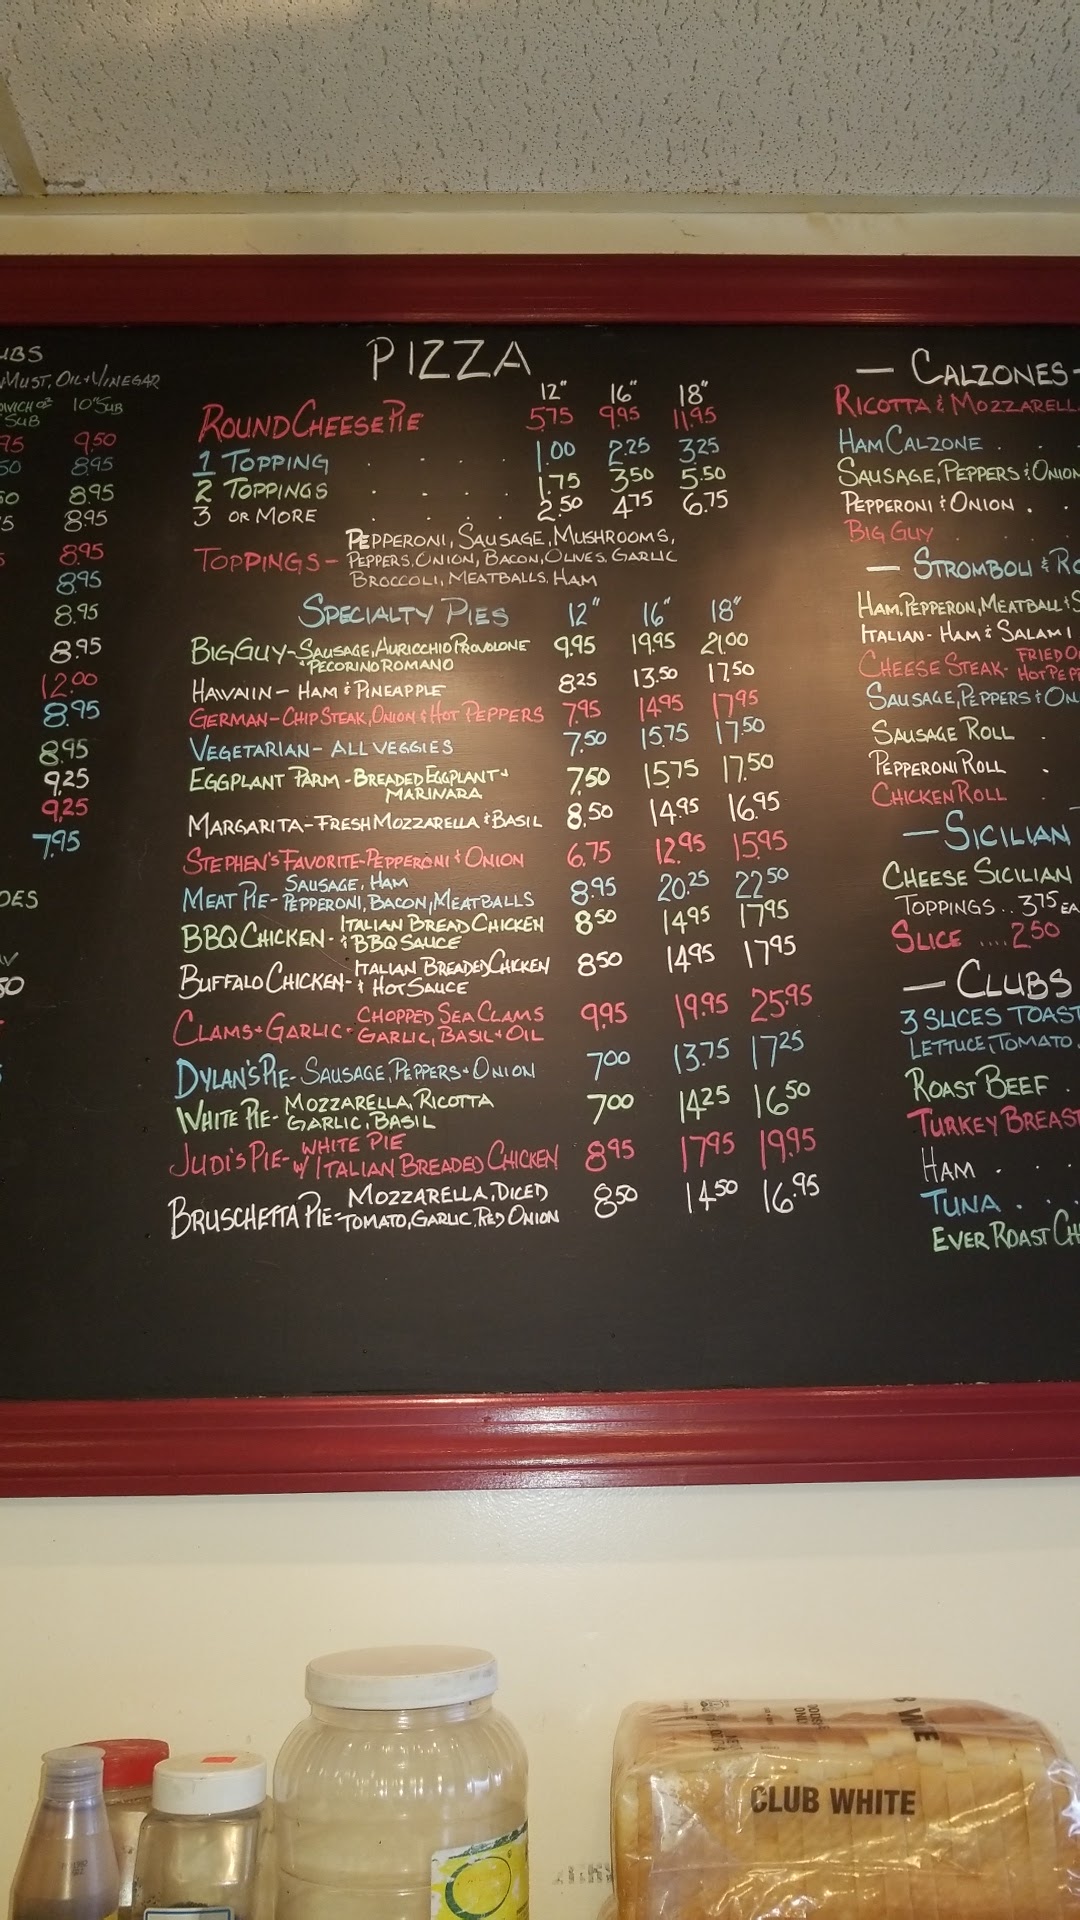 UBS
MUST, OIL + VINEGAR
10" SUB
SUB
95 9.50
50 8.95
50 8.95
5 8.95
8.95
8.95
8.95
8.95
12.00
8.95
8.95
9.25
9.25
7.95
OES
50
PIZZA
12" 16" 18"
ROUND CHEESE PIE 5.75 9.95 11.95
1 TOPPING . . . . 1.00 2.25 3.25
2 TOPPINGS . . . . 1.75 3.50 5.50
3 OR MORE . . . . 2.50 4.75 6.75
TOPPINGS - PEPPERONI, SAUSAGE, MUSHROOMS,
PEPPERS, ONION, BACON, OLIVES, GARLIC
BROCCOLI, MEATBALLS, HAM
SPECIALTY PIES 12" 16" 18"
BIG GUY - SAUSAGE, AURICCHIO PROVOLONE 9.95 19.95 21.00
+ PECORINO ROMANO
HAVAIIN - HAM & PINEAPPLE 8.25 13.50 17.50
GERMAN - CHIP STEAK, ONION & HOT PEPPERS 7.95 14.95 17.95
VEGETARIAN - ALL VEGGIES 7.50 15.75 17.50
EGGPLANT PARM - BREADED EGGPLANT + 7.50 15.75 17.50
MARINARA
MARGARITA - FRESH MOZZARELLA & BASIL 8.50 14.95 16.95
STEPHEN'S FAVORITE - PEPPERONI & ONION 6.75 12.95 15.95
MEAT PIE - SAUSAGE, HAM
PEPPERONI, BACON, MEATBALLS 8.95 20.25 22.50
BBQ CHICKEN - ITALIAN BREAD CHICKEN 8.50 14.95 17.95
& BBQ SAUCE
BUFFALO CHICKEN - ITALIAN BREADED CHICKEN 8.50 14.95 17.95
& HOT SAUCE
CLAMS + GARLIC - CHOPPED SEA CLAMS 9.95 19.95 25.95
GARLIC, BASIL + OIL
DYLAN'S PIE - SAUSAGE, PEPPERS + ONION 7.00 13.75 17.25
WHITE PIE - MOZZARELLA, RICOTTA 7.00 14.25 16.50
GARLIC, BASIL
JUDI'S PIE - WHITE PIE 8.95 17.95 19.95
W/ ITALIAN BREADED CHICKEN
BRUSCHETTA PIE - MOZZARELLA, DICED 8.50 14.50 16.95
TOMATO, GARLIC, RED ONION
— CALZONES -
RICOTTA & MOZZARELL
HAM CALZONE . . .
SAUSAGE, PEPPERS & ONION
PEPPERONI & ONION . .
BIG GUY . . .
— STROMBOLI & RO
HAM, PEPPERON, MEATBALL & S
ITALIAN - HAM & SALAMI
CHEESE STEAK - FRIED O
HOT PEP
SAUSAGE, PEPPERS & ON
SAUSAGE ROLL .
PEPPERONI ROLL .
CHICKEN ROLL .
— SICILIAN
CHEESE SICILIAN
TOPPINGS .. 3.75 EA
SLICE .... 2.50
— CLUBS
3 SLICES TOAST
LETTUCE, TOMATO,
ROAST BEEF .
TURKEY BREAST
HAM . . .
TUNA . . .
EVER ROAST CH
CLUB WHITE